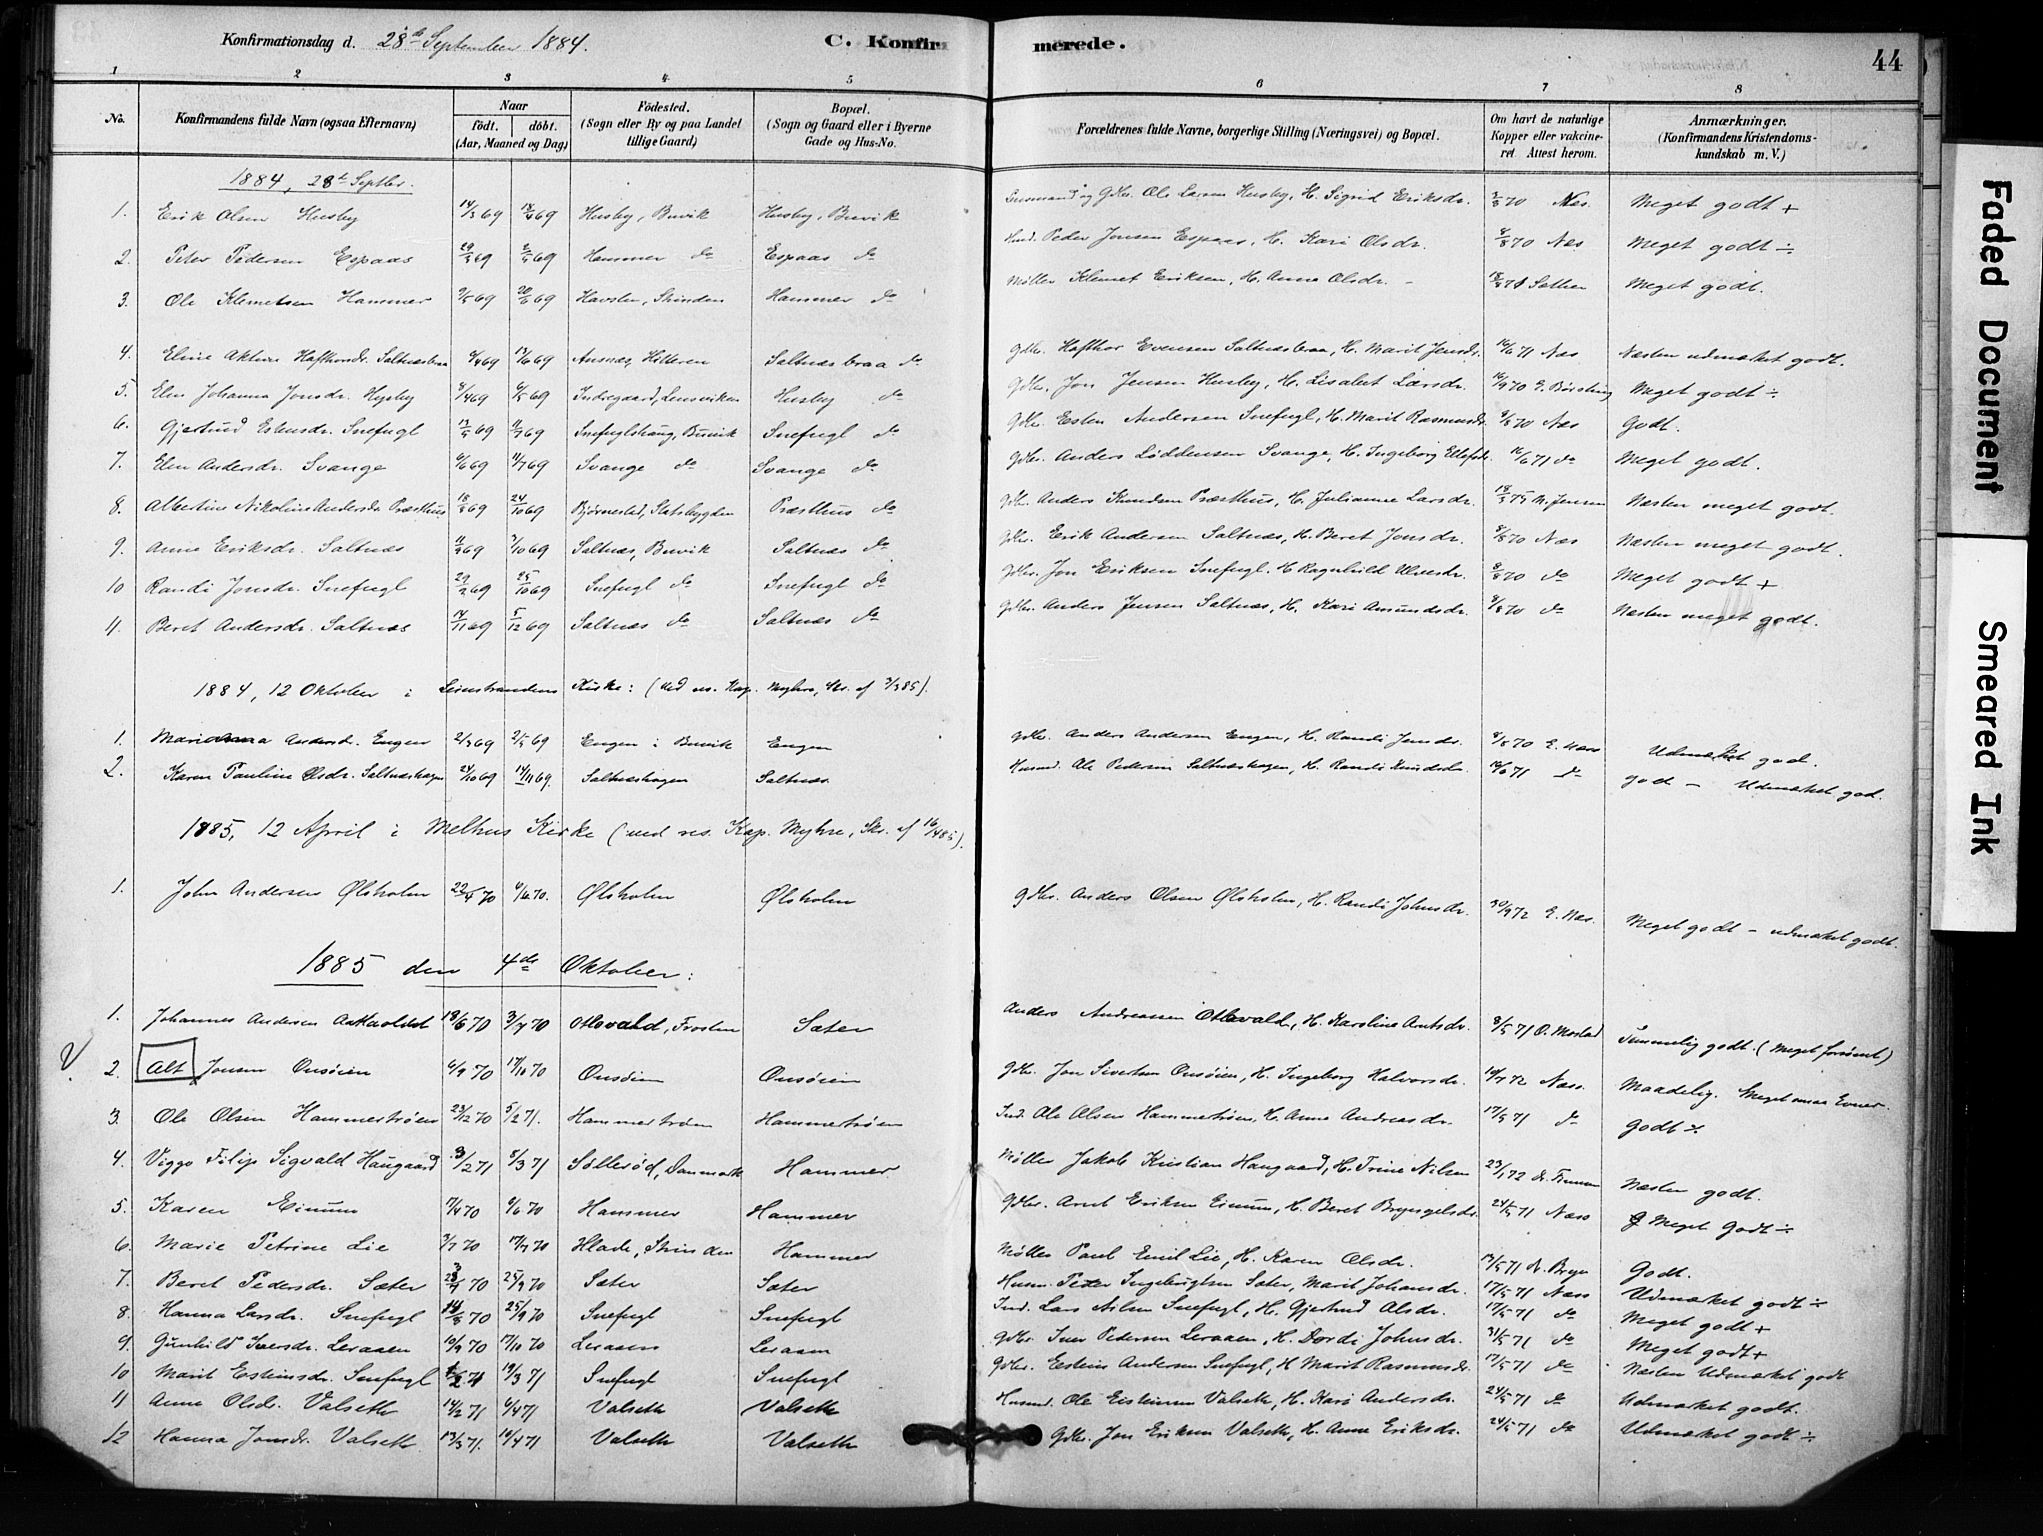 Konfirmationsdag d. 28de September 1884. C. Konfirmerede. 44
1 2 3 4 5 6 7 8
No. Konfirmandens fulde Navn (ogsaa Efternavn) Naar födt. döbt. (Aar, Maaned og Dag) Födested. (Sogn eller By og paa Landet tillige Gaard) Bopæl. (Sogn og Gaard eller i Byerne Gade og Hus-No. Forældrenes fulde Navne, borgerlige Stilling (Næringsvei) og Bopæl. Om havt de naturlige Kopper eller vakcineret Attest herom. Anmærkninger. (Konfirmandens Kristendomskundskab m. V.)
1884, 28de Septbr.
1. Erik Olsen Husby 14/3 69 69 Husby, Buvik Husby, Buvik Lensmand og Gdbr. Ole Larsen Husby, H. Sigrid Eriksdr. 70 Næs. Meget godt +
2. Peter Pedersen Espaas 69 69 Hammer do Espaas do Husm. Peder Jonsen Espaas, H. Kari Olsdr. 8/8 70 Næs Meget godt ÷
3. Ole Klemetsen Hammer 69 69 Havsten, Strinden Hammer do Møller Klemet Eriksen, H. Anna Olsdr. Meget godt.
4. Eline Hafthorsdr. Saltnæsbraa 69 69 Ansnæs, Hitteren Saltnæsbraa do Gdbr. Hafthor Evensen Saltnæsbraa, H. Marit Jensdr. 16/6 71 Næs Næsten udmærket godt.
5. Elen Johanna Jonsdr. Husby 69 69 Indregaard, Lensviken Husby do Gdbr. Jon Jensen Husby, H. Lisabet Larsdr. 70 Meget godt ÷
6. Gjertrud Estensdr. Snefugl 69 69 Snefuglshaug, Buvik Snefugl do Gdbr. Esten Andersen Snefugl, H. Marit Rasmusdr. 8/8 70 Næs Godt.
7. Elen Andersdr. Svange 6/6 69 11/7 69 Svange do Svange do Gdbr. Anders Loddensen Svange, H. Ingeborg 16/6 71 do Meget godt.
8. Albertine Nikoline Andersdr. Præsthus 69 24/10 69 Bjørnestad, Statsbygden Præsthus do Gdbr. Anders Knudsen Præsthus, H. Julianne Larsdr. 75 M. Jensen Næsten meget godt.
9. Anne Eriksdr. Saltnæs 69 3/10 69 Saltnæs, Buvik Saltnæs do Gdbr. Erik Andersen Saltnæs, H. Beret Jonsdr. 8/8 70 Næs Næsten meget godt.
10 Randi Jonsdr. Snefugl 69 25/10 69 Snefugl do Snefugl do Gdbr. Jon Eriksen Snefugl. H Ragnhild 8/8 70 do Meget godt +
11. Beret Andersdr. Saltnæs 14/11 69 5/12 69 Saltnæs do Saltnæs do Gdbr. Anders Jensen Saltnæs, H. Kari Amundsdr. 8/8 70 do Næsten meget godt.
1884, 12 Oktober i Leinstrandens Kirke: (ved res. Kap. Myhre, Skr. af 3/3 85).
1. Andersdr. Engen 69 69 Engen i Buvik Engen Gdbr. Anders Andersen Engen, H. Randi Jonsdr. 8/8 70 E. Næss Udmærket god.
2. Karen Pauline Olsdr. Saltnæshagen 24/10 69 14/11 69. Saltnæshagen Saltnæs Husmd. Ole Pedersen Saltnæshagen, H. Randi Knudsdr. 71 do god – Udmærket god.
1885, 12 April i Melhus Kirke (ved res. Kap. Myhre, Skr. af 16/4 85).
1. John Andersen Ølsholm 70 6/6 70. Ølsholm Ølsholm Gdbr. Anders Olsen Ølsholm, H. Randi Johnsdr. 30/9 72 E. Næs. Meget godt – udmærket godt.
1885 den 4de Oktober:
1. Johannes Andersen 19/6 70 3/7 70 Frosten Sæter Anders Andreassen H. Karoline Arntsdr. 71 O. Mostad Temmelig godt. (Meget forsømt)
V. 2. Alt Jonsen Onsøien 4/9 70 17/10 70 Onsøien Onsøien Gdbr. Jon Sivertsen Onsøien, H. Ingeborg Halvorsdr. 72 Næss. Maadelig. Meget smaa Evner.
3. Ole Olsen Hammertrøen 23/12 70 5/2 71. Hammertrøen Hammertrøen Ind. Ole Olsen Hammertrøen, H. Anne Andreasdr. 17/5 71 do Godt ÷
4. Viggo Filip Sigvald Haugaard 3/2 71 8/3 71 Søllerød, Danmark Hammer. Møller Jakob Kristian Haugaard, H. Trine Nilsen 23/1 72 Næsten godt.
5. Karen Einum 17/4 70 6/6 70 Hammer Hammer Gdbr. Arnt Eriksen Einum, H. Beret Bryngelsdr. 24/5 71 Næss Meget Godt ÷
6. Marie Petrine Lie 3/7 70 17/7 70 Hlade, Strinden Hammer Møller Paul Emil Lie, H. Karen Olsdr. 17/5 71 Godt.
7. Beret Pedersdr. Sæter 70 25/9 70 Sæter Sæter Husm. Peder Ingebrigtsen Sæter, Marit Johansdr. 17/5 71 Næss Udmærket godt ÷
8. Hanna Larsdr. Snefugl 70 25/9 70 Snefugl Snefugl Ind. Lars Nilsen Snefugl, H. Gjertrud Olsdr. 17/5 71 do Meget godt +
9. Gunhild Iversdr. Leraaen 10/9 70 17/10 70 Leraaen Leraaen Gdbr. Iver Pedersen Leraaen, H. Dordi Johnsdr. 31/5 71 do Meget godt +
10 Marit Estensdr. Snefugl 71 19/3 71 Snefugl Snefugl Gdbr. Estens Andersen Snefugl, H Marit Rasmusdr. 17/5 71 do Næsten Udmærket godt
11 Anne Olsdr. Valseth 14/2 71 6/4 71 Valseth Valseth Husmd. Ole Eistensen Valseth, H. Kari Andersdr. 24/5 71 do Udmærket godt.
12 Hanna Jonsdr. Valseth 13/3 71. 10/4 71 Valseth Valseth Gdbr. Jon Eriksen Valseth, H. Anne Eriksdr. 24/5 71 do Udmærket godt ÷
Faded Document
Smeared Ink